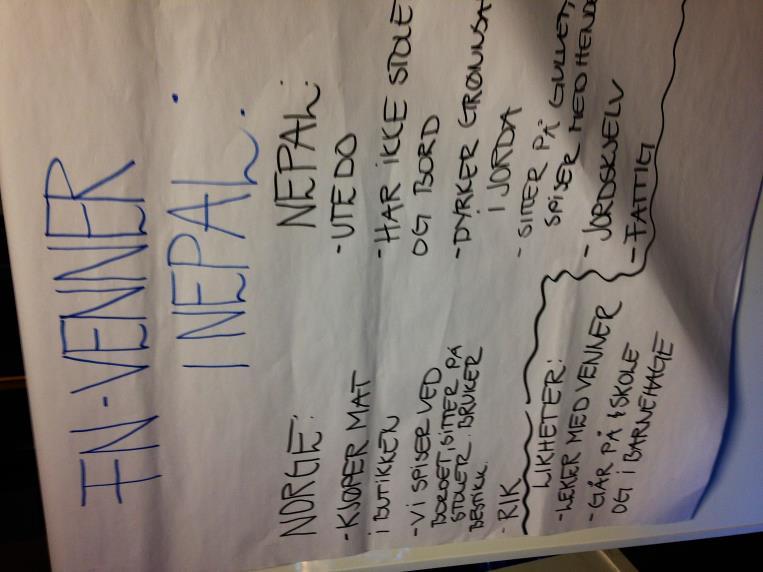 FN-VENNER
I NEPAL:
NORGE:
- KJØPER MAT
I BUTIKKEN
- VI SPISER VED
BORDET, SITTER PÅ
STOLER. BRUKER
BESTIKK.
- RIK
NEPAL:
- UTEDO
- HAR IKKE STOLE
OG BORD
- DYRKER GRØNNSA
I JORDA
- SITTER PÅ GULVET,
SPISER MED HENDE
- JORDSKJELV
- FATTIG
LIKHETER:
- LEKER MED VENNER
- GÅR PÅ SKOLE
OG I BARNEHAGE